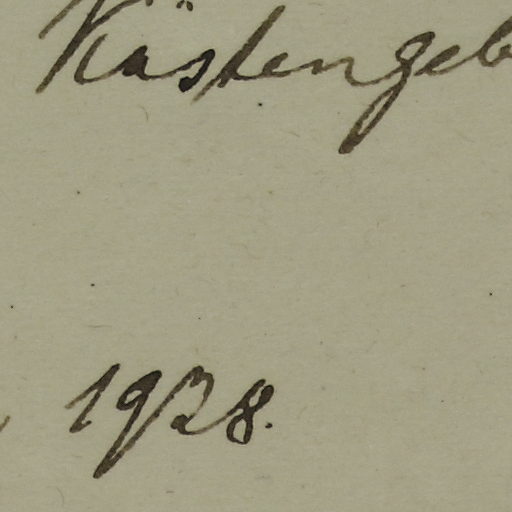 Küstengeb
1928.